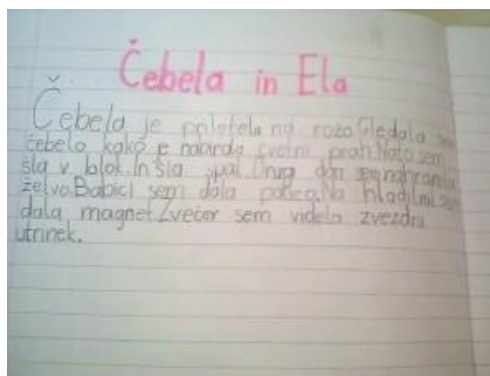 Čebela in Ela
Čebela je priletela na rožo. Gledala sem
čebelo kako je nabirala cvetni prah. Nato sem
šla v blok. In šla spat. Drug dan sem nahranila
želvo. Babici sem dala potico. Na hladilnik sem
dala magnet. Zvečer sem videla zvezdni
utrinek.